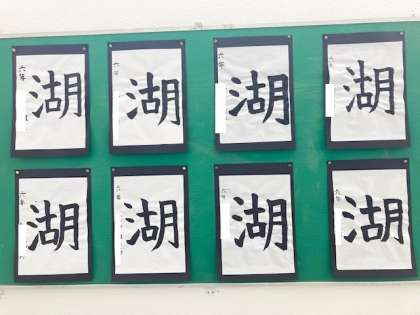 六年 湖
六年 湖
六年 湖
六年 湖
六年 湖
六年 湖
六年 湖
六年 湖